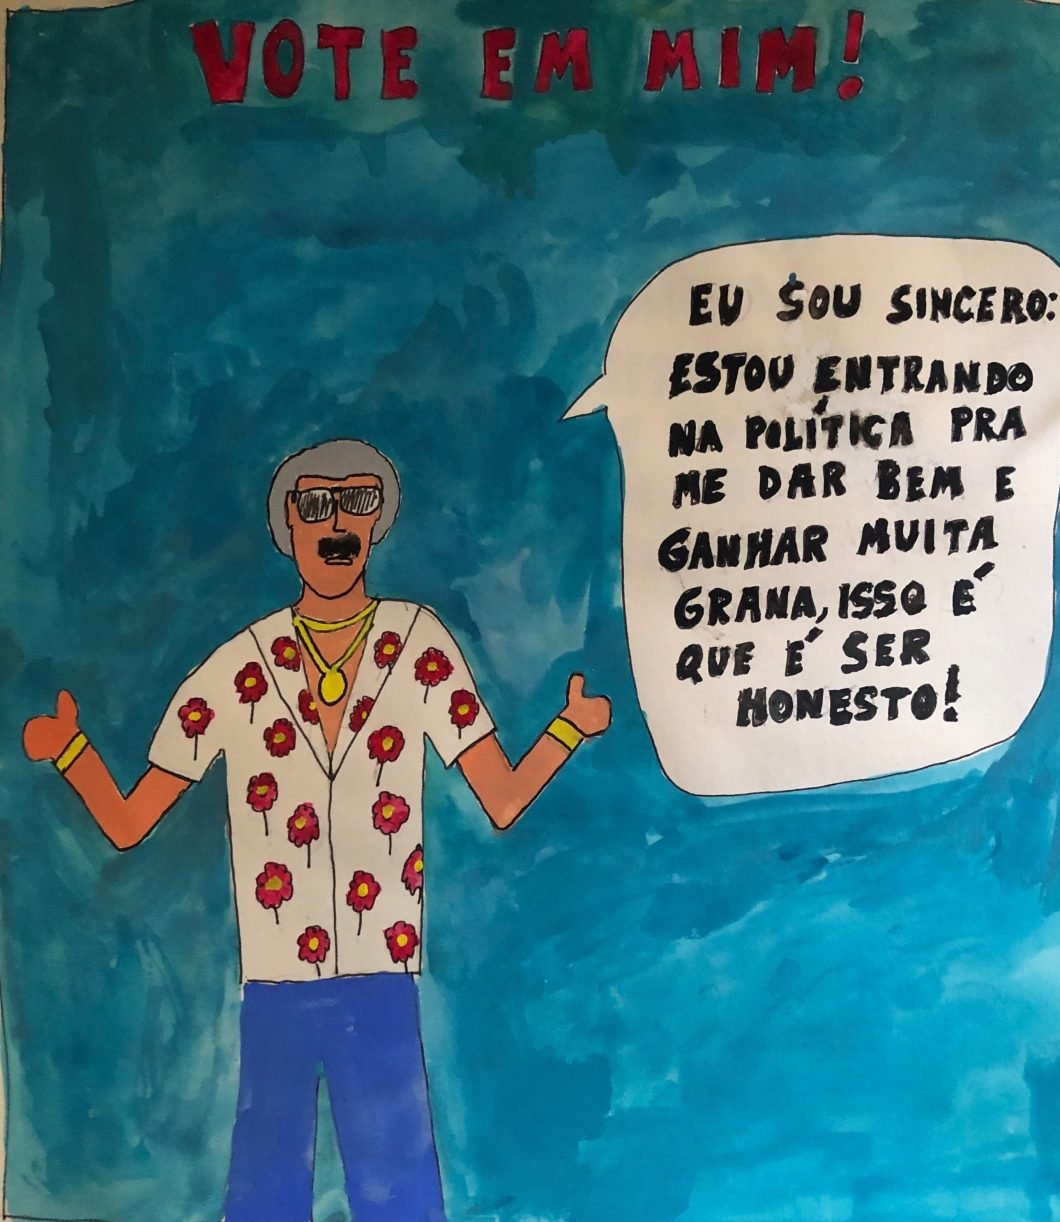 VOTE EM MIM!
EU SOU SINCERO:
ESTOU ENTRANDO
NA POLÍTICA PRA
ME DAR BEM E
GANHAR MUITA
GRANA, ISSO É
QUE É SER
HONESTO!